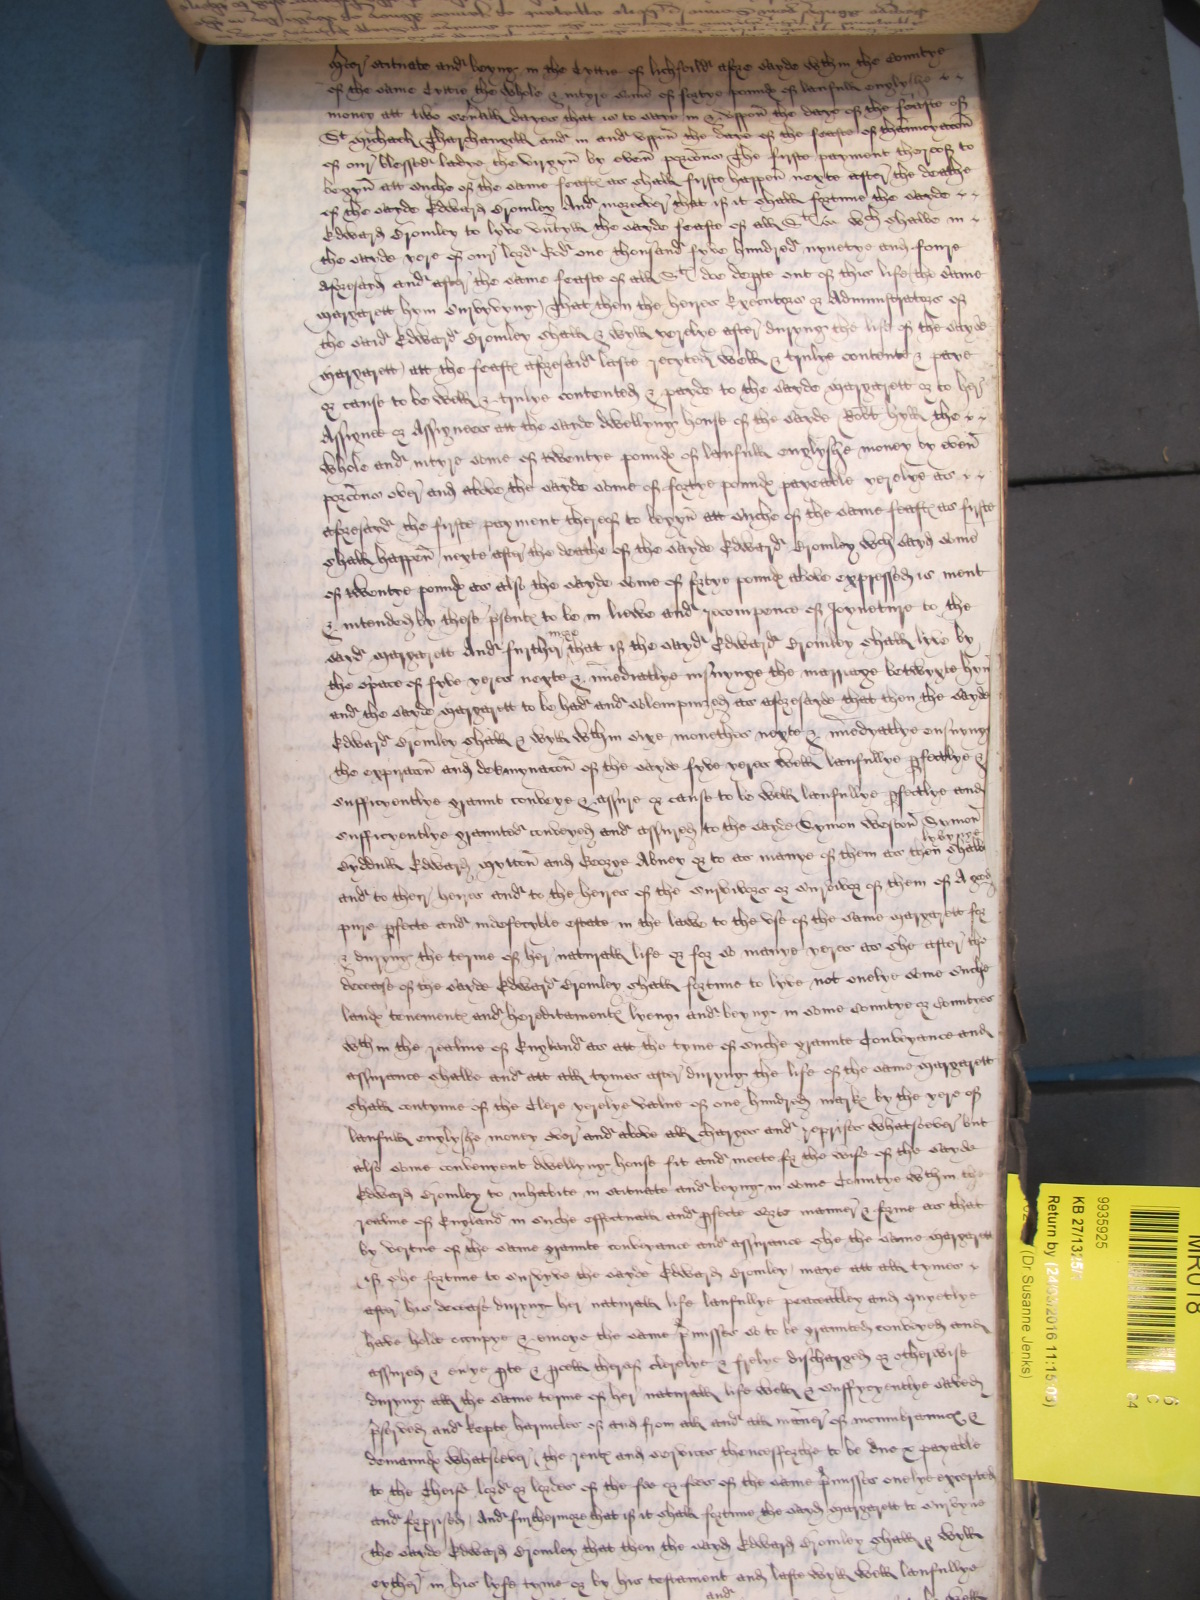 situate and beyng in the Cyttie of lichfeild afore sayde wthin the Countye
of the same Cyttie the whole & intyre some of fortye poundꝭ of laufull englyshe
money att two severall dayes that is to saye in & uppon the daye of the feaste of
St Michaell Tharchangell and in and uppon the daye of the feaste of thannuncacon
of our blessed ladye the virgyn by even porcōns The firste payment thereof to
begyn att suche of the same feastꝭ as shall firste happen nexte after the deathe
of the sayde Edward Bromley And moreover that if it shall fortune the sayde
Edward Bromley to lyve untyll the sayde feaste of all Stꝭ wch shalbe in
the sayde yere of our lord God one thousand fyve hundred nynetye and foure
aforesayd and after the same feaste of all Stꝭ doe depte out of this life the same
Margarett hym survyvyng That then the heires Executors or Administrators of
the said Edward Bromley shall & wyll yerelye after duryng the life of the sayde
Margarett att the feastꝭ aforesaid laste recyted well & trulye content & paye
or cause to be well & trulye contented & payde to the sayde Margarett or to her
Assignee or Assignees att the sayde dwellyng house of the sayde Robt Hyll the
whole and intyre some of twentye poundꝭ of laufull englyshe money by even
porcōns over and above the sayde some of fortye poundꝭ payeable yerelye as
aforesayd the firste payment thereof to begyn att suche of the same feastꝭ as firste
shall happen nexte after the deathe of the sayde Edward Bromley wch sayd some
of twentye poundꝭ as also the sayde some of fortye poundꝭ above expressed is ment
& intended by these psentꝭ to be in liewe and recompence of Joyncture to the
sayd Margarett And further more that if the sayd Edward Bromley shall lyve by
the space of fyve yeres nexte & imediatlye insuynge the marriage betwyxte hym
and the sayde Margarett to be had and solempnized as aforesayde that then the sayde
Edward Bromley shall & wyll wthin sixe monethes nexte & imediatlye ensuyng
the expiracon and determynacon of the sayde fyve yeres well laufullye pfectlye &
sufficyentlye graunt conveye & assure or cause to be well laufullye pfectlye and
sufficyentlye graunted conveyed and assured to the sayde Symon Weston Symon
Byddull Edward Mytton and George Abney or to as manye of them as then shalbe
lyvynge
and to their heires and to the heires of the survivors or survivor of them of A good
pure pfecte and indefecyble estate in the lawe to the use of the same Margarett for
& duryng the terme of her naturall life or for so manye yeres as she after the
decease of the sayde Edward Bromley shall fortune to lyve not onelye some suche
landꝭ tenementꝭ and hereditamentꝭ lyeng and beyng in some Countye or Countyes
wthin the realme of England as att the tyme of suche graunte Conveyance and
assurance shalbe and att all tymes after duryng the life of the same Margarett
shall contynue of the Clere yerelye value of one hundred markꝭ by the yere of
laufull englyshe money over and above all charges and reprises whatsoever but
also some convenyent dwellyng house fit and meete for the wife of the sayde
Edward Bromley to inhabite in situate and beyng in some Countye wthin the
realme of England in suche effectuall and pfecte sorte manner & forme as that
by vertue of the same graunte conveyance and assurance she the same Margarett
if she fortune to survyve the sayde Edward Bromley maye att all tymes
after his decease duryng her naturall life laufullye peaceabley and quyetlye
have holde occupye & enioye the same pmisses so to be graunted conveyed and
assured & evrye pte & pcell therof clerelye & frelye discharged or otherwise
duryng all the same terme of her naturall life well & suffycyentlye saved
pserved and kepte harmeles of and from all and all maner of incumbrauncꝭ &
demaundꝭ whatsoever the rentꝭ and services thencefforthe to be due & payable
to the Cheife lord or lordes of the fee or fees of the same pmisses onelye excepted
and forprised And furthermore that if it shall fortune the sayd Margarett to survive
the sayde Edward Bromley that then the sayd Edward Bromley shall & wyll
eyther in his lyfe tyme or by his testament and laste wyll well laufullye
and
9935925
KB 27/13
Return by (24/05/2016 11:15:03)
(Dr Susanne Jenks)
MR018